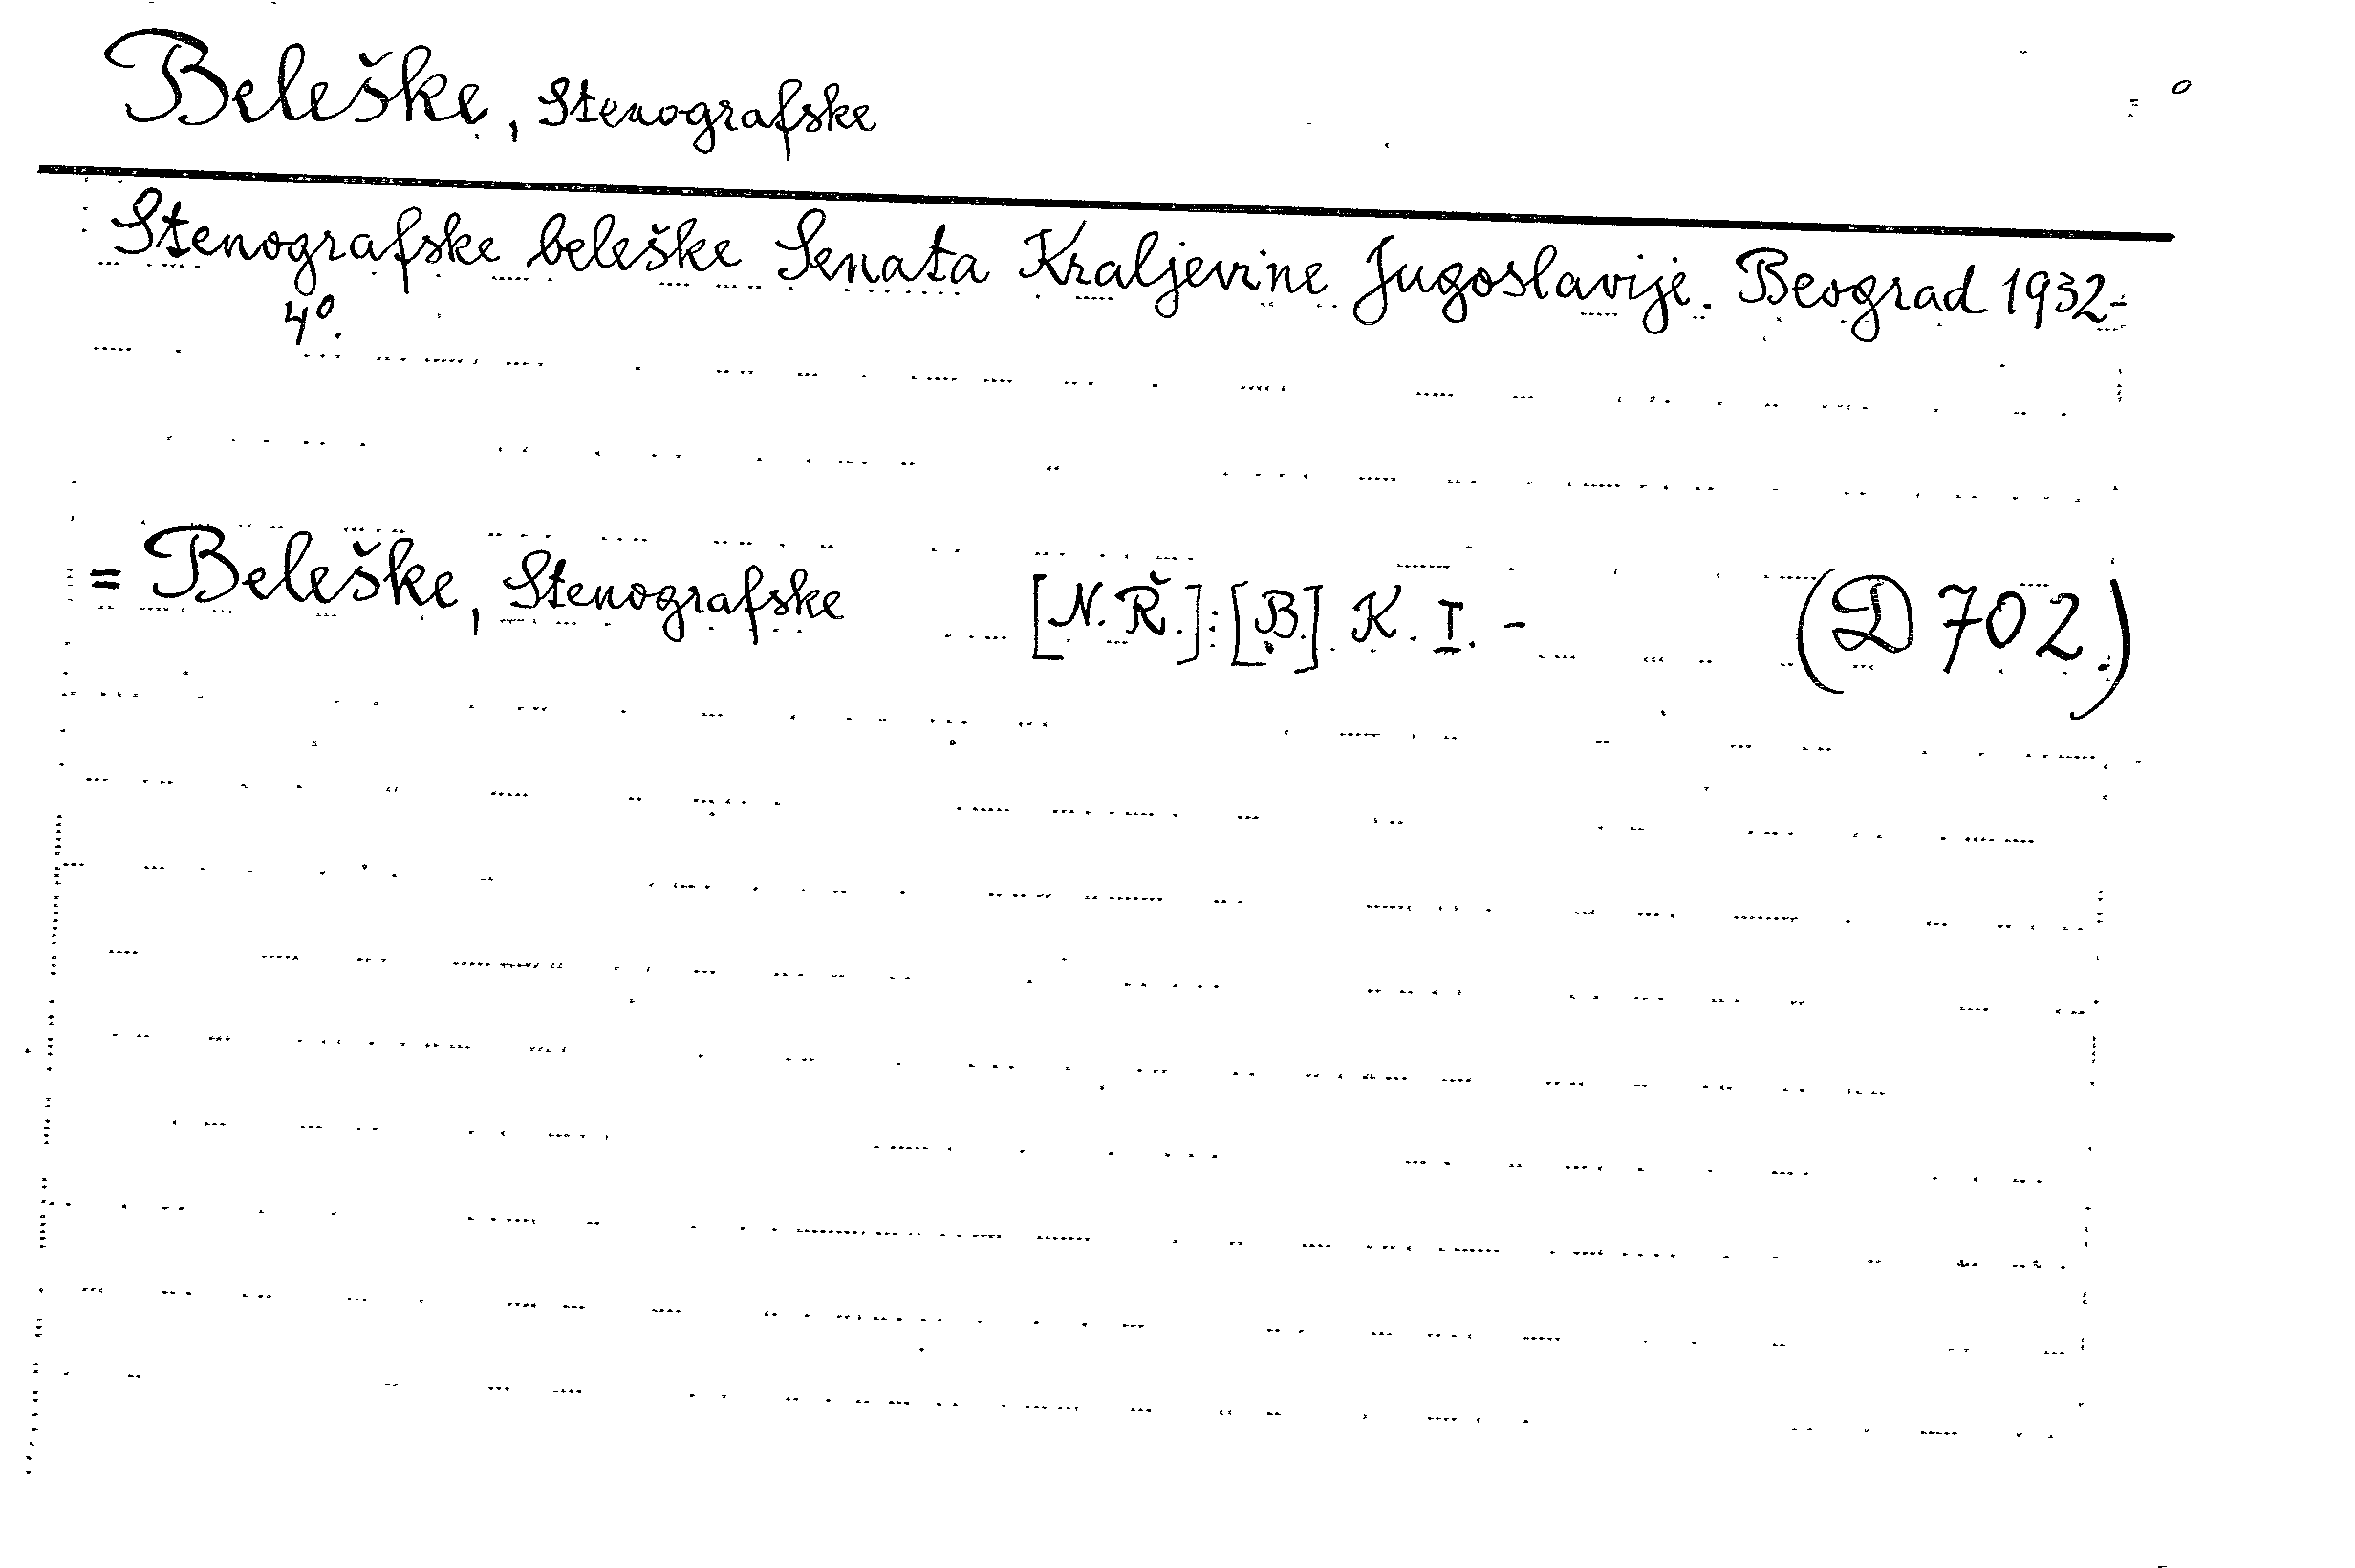 Beleške, Stenografske
Stenografske beleške Senata Kraljevine Jugoslavije. Beograd 1932-
4°.
= Beleške, Stenografske [N.Ř.]:[B.] K. I. - (D 702.)